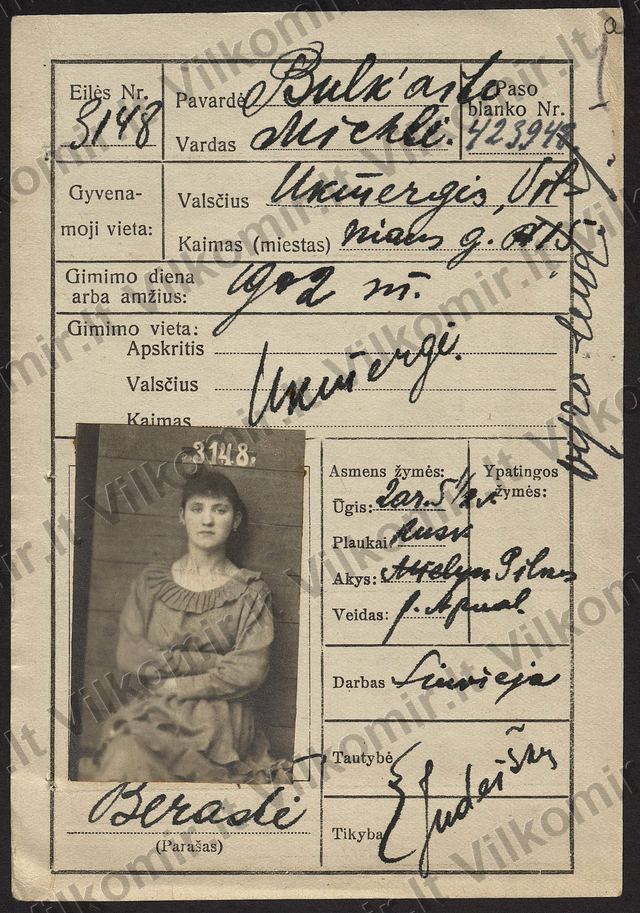 a
Eilės Nr.
3148
Pavardė Bulkaitė
Vardas Michlė.
Paso
blanko Nr.
423948
Gyvena-
moji vieta:
Valsčius Ukmergės, Vil-
Kaimas (miestas) niaus g. 75
Gimimo diena
arba amžius: 1902 m.
Gimimo vieta:
Apskritis
Valsčius Ukmergė.
Kaimas
3148.
Asmens žymės:
Ūgis: 2 ar. 5 1/2 v.
Plaukai
Akys:
Veidas:
Ypatingos
žymės:
Darbas Siuvėja
Tautybė
Tikyba
Beraštė
(Parašas)
Vilkomir.lt